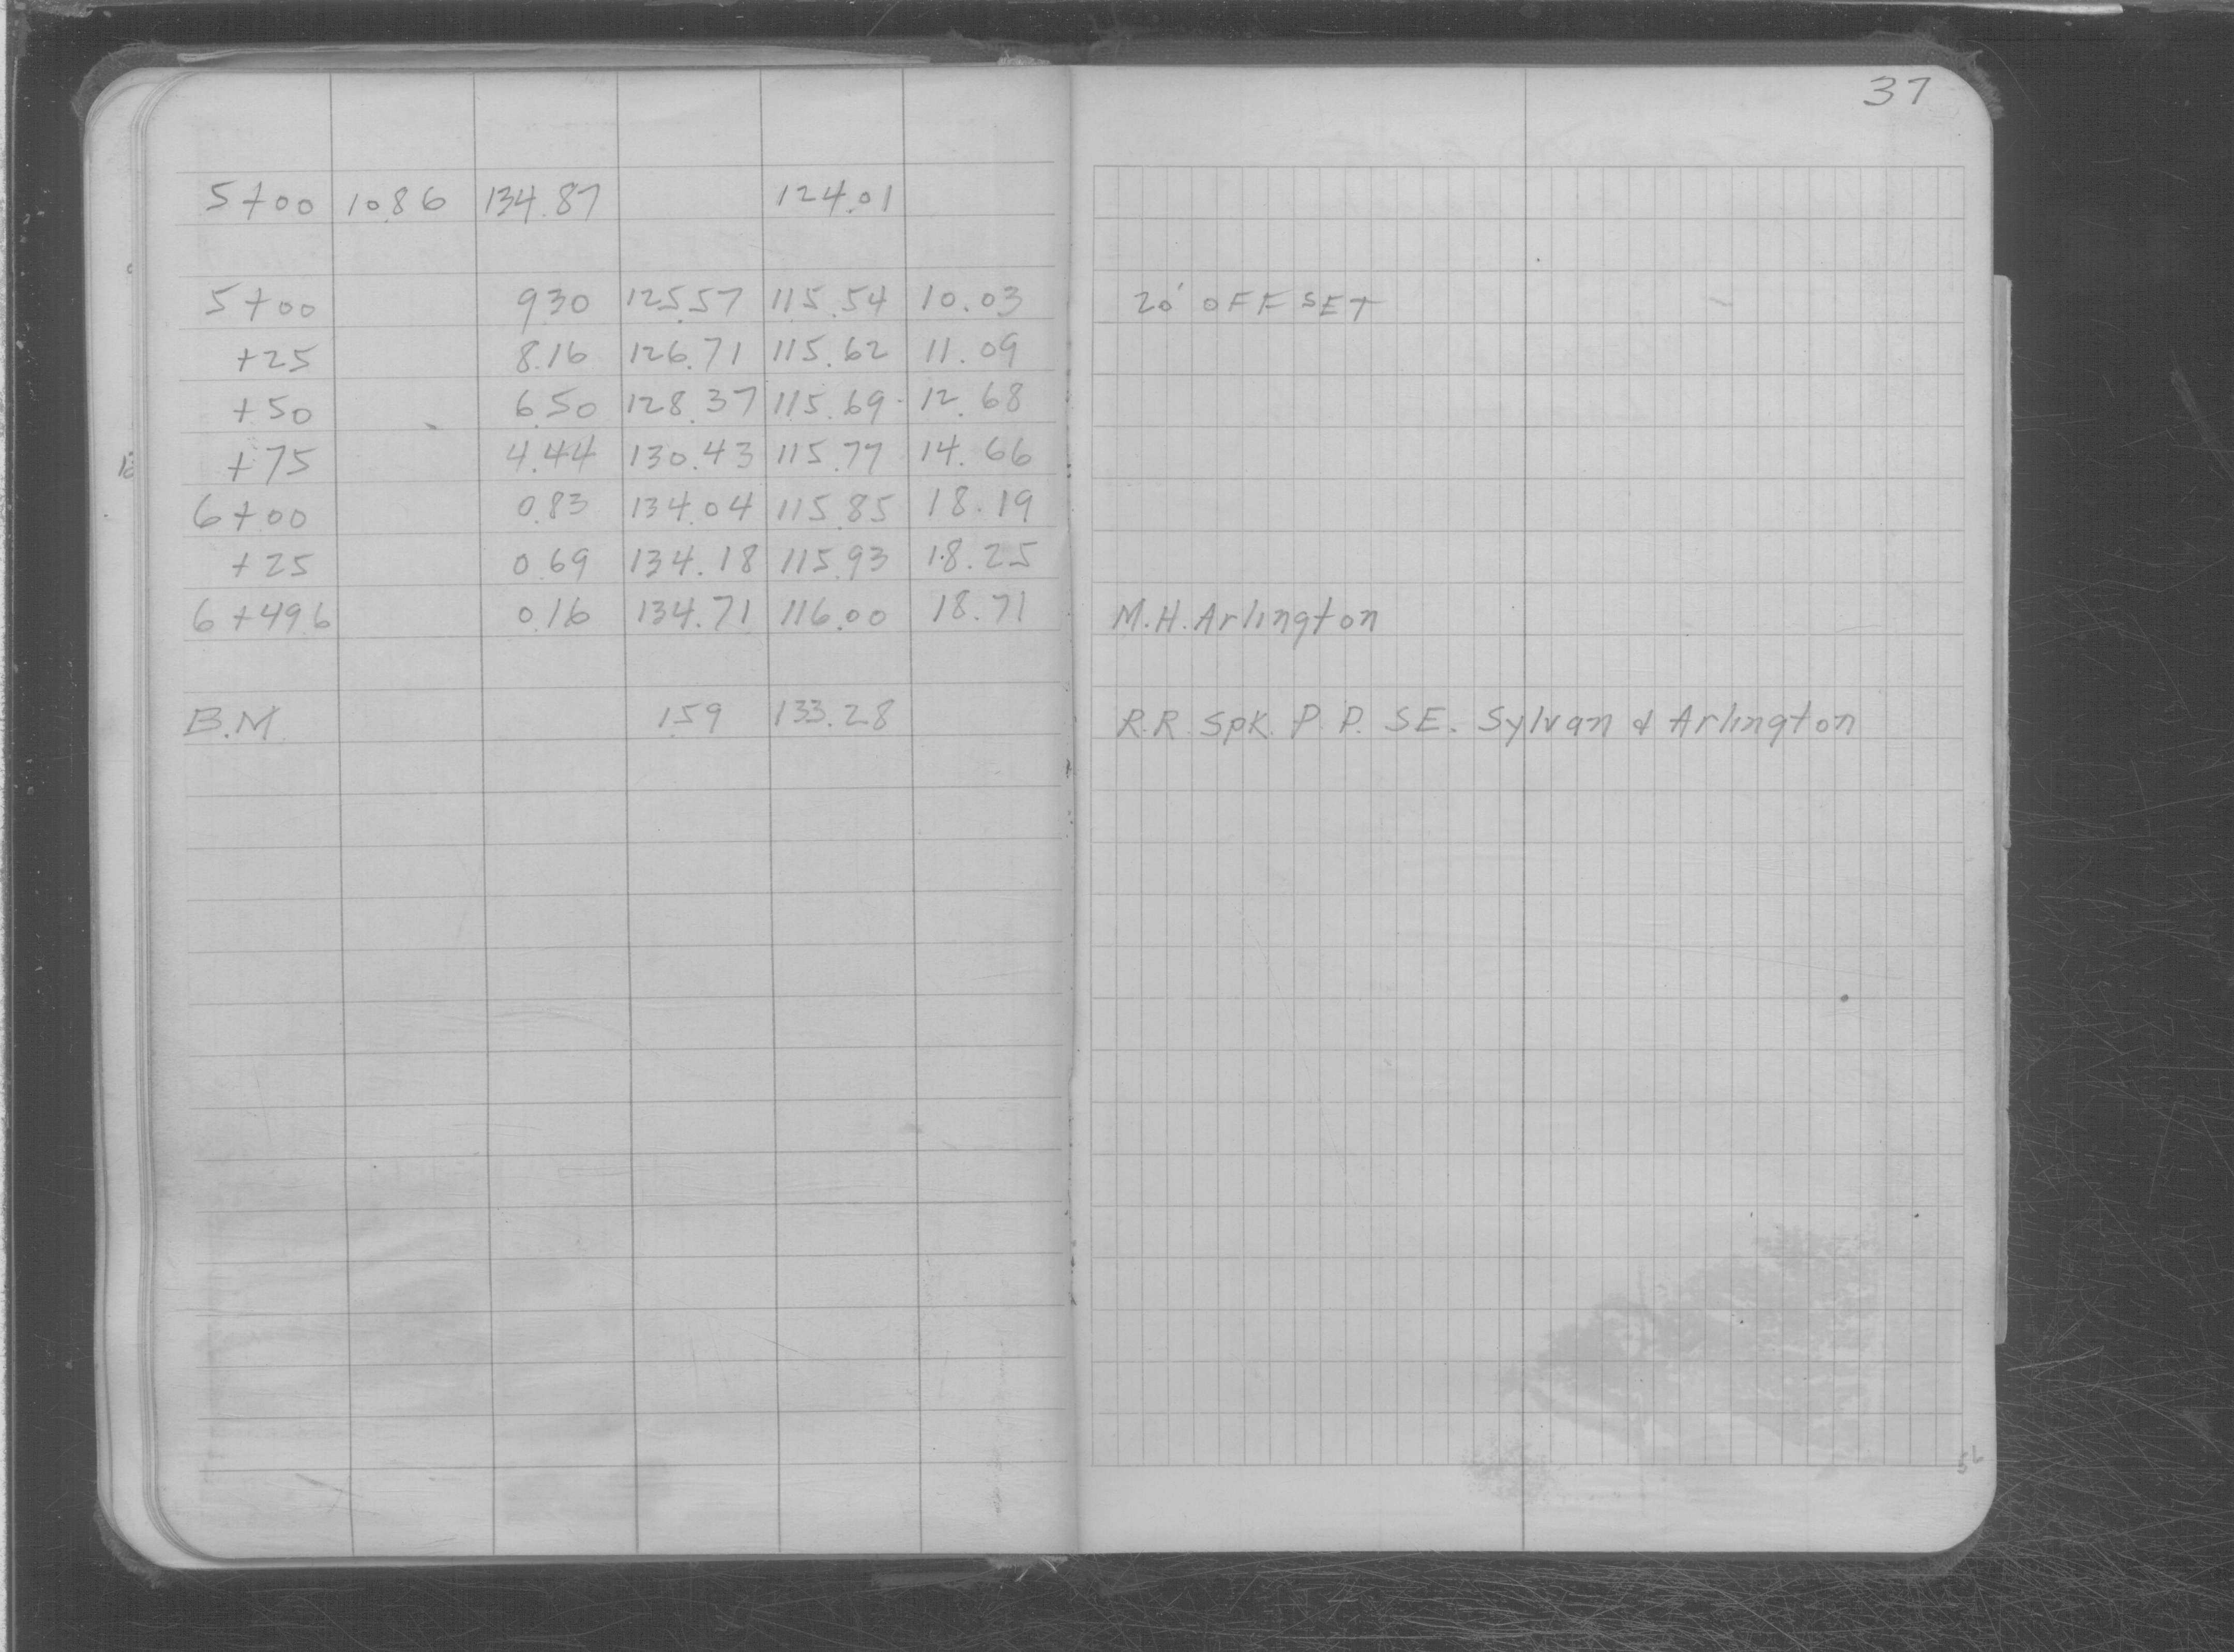 37
5+00 10.86 134.87 124.01
5+00 9.30 125.57 115.54 10.03 20' OFFSET
+25 8.16 126.71 115.62 11.09
+50 6.50 128.37 115.69 12.68
+75 4.44 130.43 115.77 14.66
6+00 0.83 134.04 115.85 18.19
+25 0.69 134.18 115.93 18.25
6+49.6 0.16 134.71 116.00 18.71 M.H. Arlington
B.M. 1.59 133.28 R.R. Spk. P.P. SE. Sylvan & Arlington